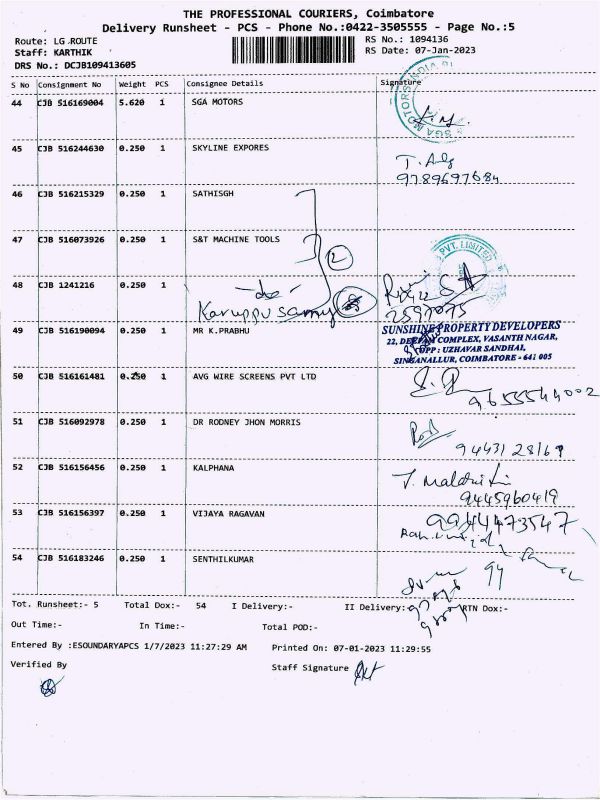 THE PROFESSIONAL COURIERS, Coimbatore
Delivery Runsheet - PCS - Phone No.:0422-3505555 - Page No.:5
Route: LG ROUTE RS No.: 1094136
Staff: KARTHIK RS Date: 07-Jan-2023
DRS No.: DCJB109413605
S No Consignment No Weight PCS Consignee Details Signature
44 CJB 516169004 5.620 1 SGA MOTORS
45 CJB 516244630 0.250 1 SKYLINE EXPORES
9789697684
46 CJB 516215329 0.250 1 SATHISGH
47 CJB 516073926 0.250 1 S&T MACHINE TOOLS 2
PVT. LIMITED
48 CJB 1241216 0.250 1 -do-
Karuppusamy
49 CJB 516190094 0.250 1 MR K.PRABHU
SUNSHINE PROPERTY DEVELOPERS
22, DEEPAM COMPLEX, VASANTH NAGAR,
OPP : UZHAVAR SANDHAI,
SINGANALLUR, COIMBATORE - 641 005
50 CJB 516161481 0.250 1 AVG WIRE SCREENS PVT LTD
9655544002
51 CJB 516092978 0.250 1 DR RODNEY JHON MORRIS
52 CJB 516156456 0.250 1 KALPHANA
9445960419
53 CJB 516156397 0.250 1 VIJAYA RAGAVAN 9944473547
54 CJB 516183246 0.250 1 SENTHILKUMAR
Tot. Runsheet:- 5 Total Dox:- 54 I Delivery:- II Delivery: RTN Dox:-
Out Time:- In Time:- Total POD:-
Entered By :ESOUNDARYAPCS 1/7/2023 11:27:29 AM Printed On: 07-01-2023 11:29:55
Verified By Staff Signature